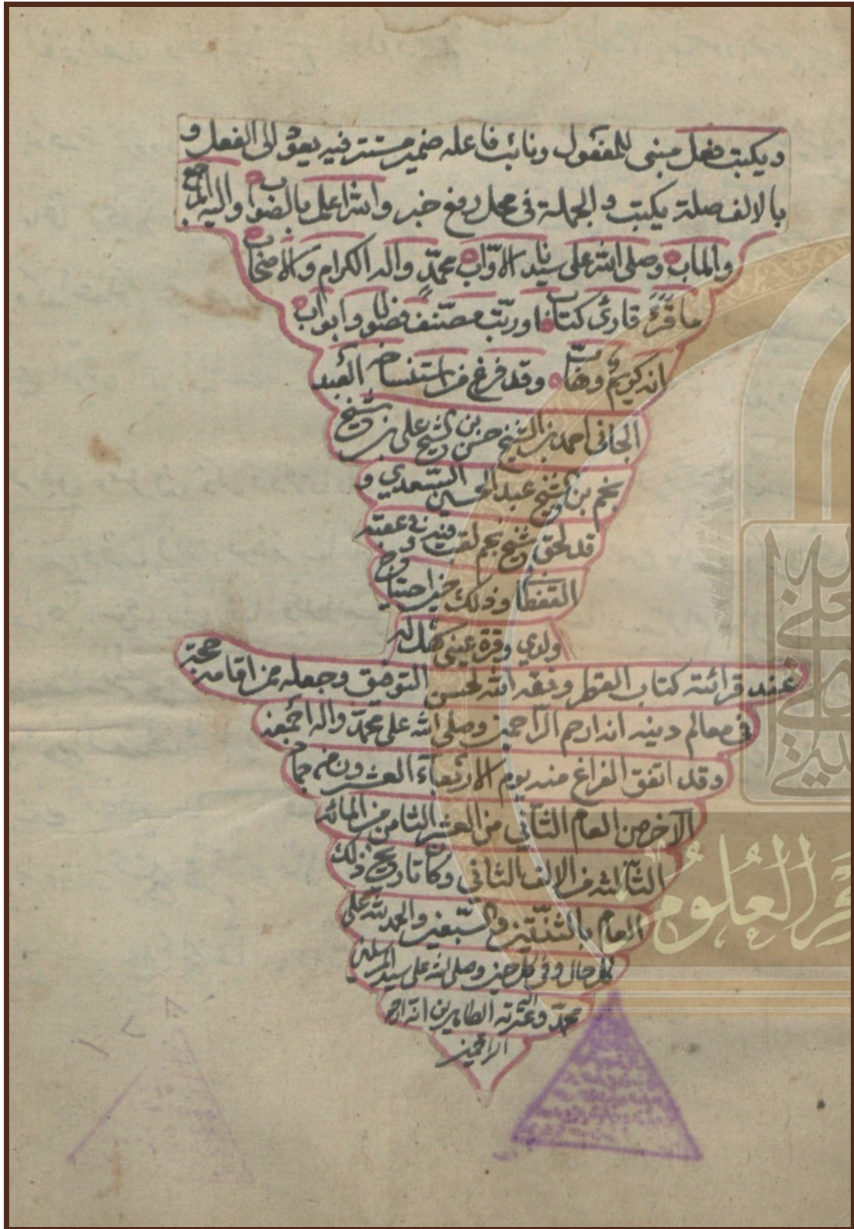 ويكبت فعل مبنى للمفعول ونائب فاعله ضمير مستتر فيه يعود الى الفعل و
بالالف صلة يكبت والجملة فى محل رفع خبر والله اعلم بالصواب واليه المرجع
والماب وصلى الله على سيدنا الاواب محمد واله الكرام والاصحاب
ما قرء قارئ كتابا ورتب مصنف فصولا وابواب
انه كريم وهاب وقد فرغ من استنساخه العبد
الجانى احمد بن الشيخ حسن بن الشيخ على بن شيخ
نجم بن شيخ عبد الحسين السعدي و
قد لحق شيخ نجم لقب فى عقبه
القفطا وذلك حين احتياج
ولدي وقرة عينى
عند قرائته كتاب القطر وفقه الله لحسن التوفيق وجعله من اقامه حجة
فى معالم دينه انه ارحم الراحمين وصلى الله على محمد واله اجمعين
وقد اتفق الفراغ منه يوم الاربعاء العشرون من جما
الآخر من العام الثاني من العشر الثامن من المائه
الثالثه من الالف الثاني وكا تاريخ ذلك
العام بالثنتين والسبعين والحمد لله على
كل حال وفى كل حين وصلى الله على سيد المرسلين
محمد وعترته الطاهرين انه ارحم
الراحمين
العلوم